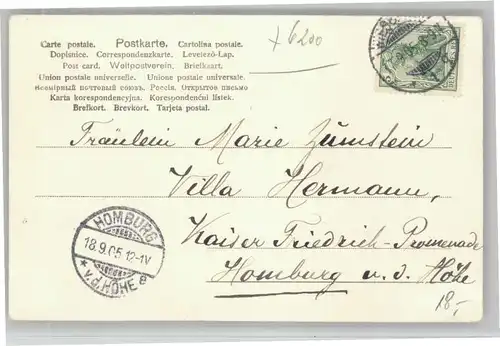 Carte postale. Postkarte. Cartolina postale.
Dopisnice. Correspondenzkarte. Levelező-Lap.
Post card. Weltpostverein. Briefkaart.
Union postale universelle. Unione postale universale.
Всемірный почтовый союзъ. Россія. Открытое письмо
Karta korespondencyjna. Korespondenční listek.
Brefkort. Brevkort. Tarjeta postal.
6200
Fräulein Marie Zumstein
Villa Hermann,
Kaiser Friedrich-Promenade
Homburg u. d. Höhe
HOMBURG
18.9.05.12-1V
* v.d. HÖHE a
18,-